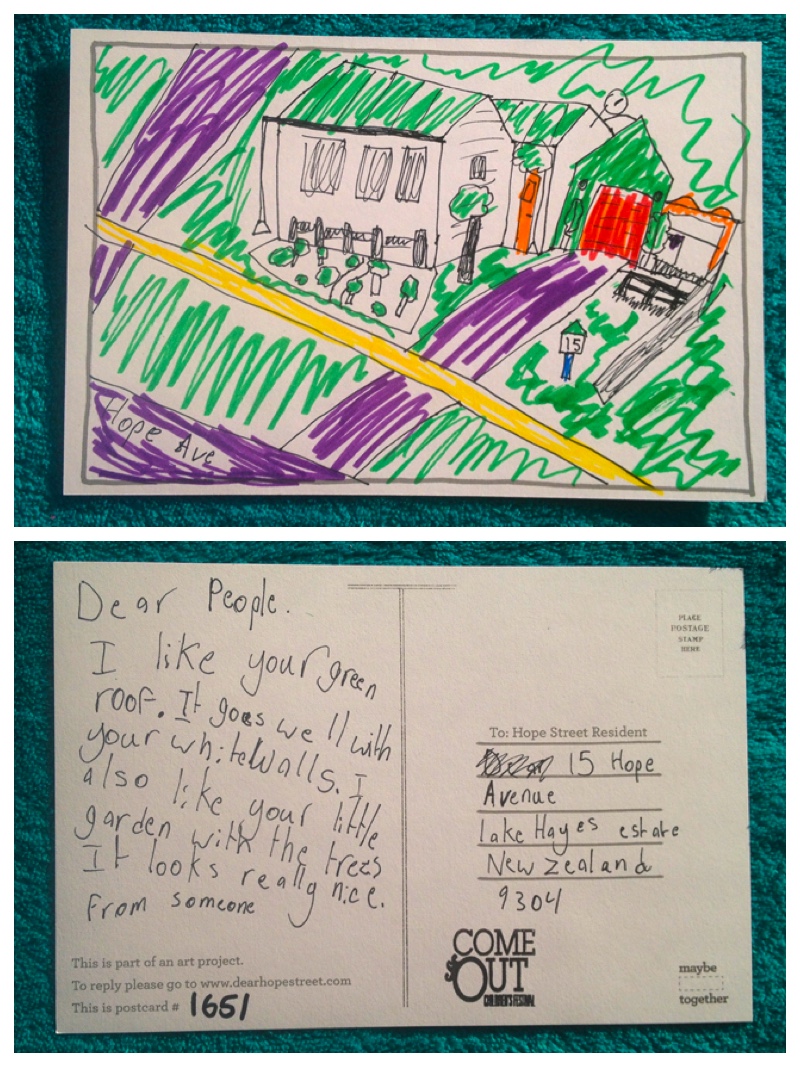 15
Hope Ave
Dear People.
I like your green
roof. It goes well with
your white walls. I
also like your little
garden with the trees
It looks really nice.
From someone
This is part of an art project.
To reply please go to www.dearhopestreet.com
This is postcard # 1651
PLACE
POSTAGE
STAMP
HERE
To: Hope Street Resident
15 Hope
Avenue
lake Hayes estate
New Zealand
9304
COME
OUT
CHILDREN'S FESTIVAL
maybe
together